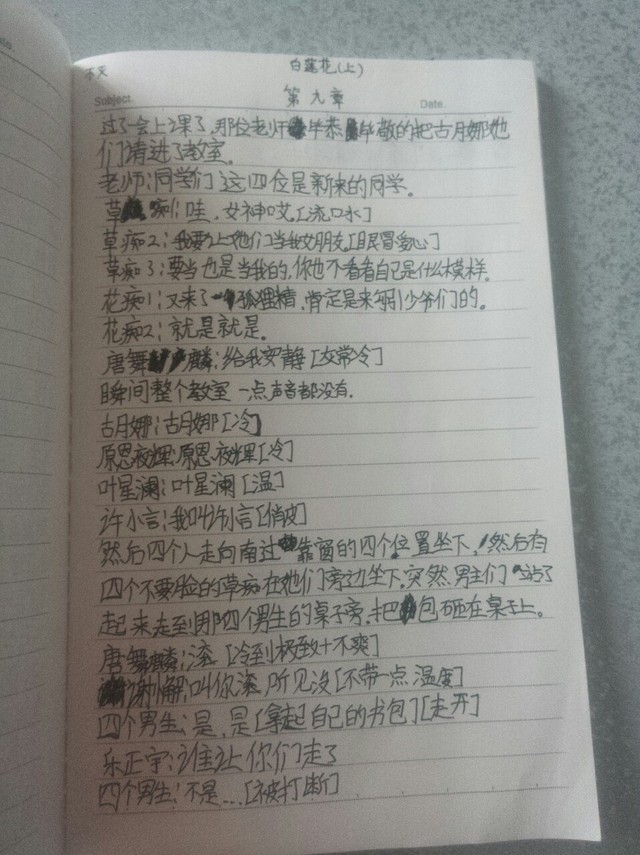 不天
白莲花(上)
Subject.
第九章
Date.
过了一会上课了,那位老师毕恭毕敬的把古月娜她
们请进了教室。
老师:同学们这四位是新来的同学。
草痴1:哇,女神哎[流口水]
草痴2:我要让她们当我女朋友[眼冒爱心]
草痴3:要当也是当我的,你也不看看自己是什么模样。
花痴1:又来了一个狐狸精,肯定是来勾引少爷们的。
花痴2:就是就是。
唐舞麟:给我安静[女常冷]
瞬间整个教室一点声音都没有。
古月娜:古月娜[冷]
原恩夜辉:原恩夜辉[冷]
叶星澜:叶星澜[温]
许小言:我叫许小言[俏皮]
然后四个人走向南过靠窗的四个位置坐下,然后有
四个不要脸的草痴在她们旁边坐下,突然,男主们站了
起来走到那四个男生的桌子旁,把包砸在桌子上。
唐舞麟:滚[冷到极致+不爽]
谢解:叫你滚,听见没[不带一点温度]
四个男生:是,是[拿起自己的书包][走开]
乐正宇:谁让你们走了
四个男生:不是...[被打断]